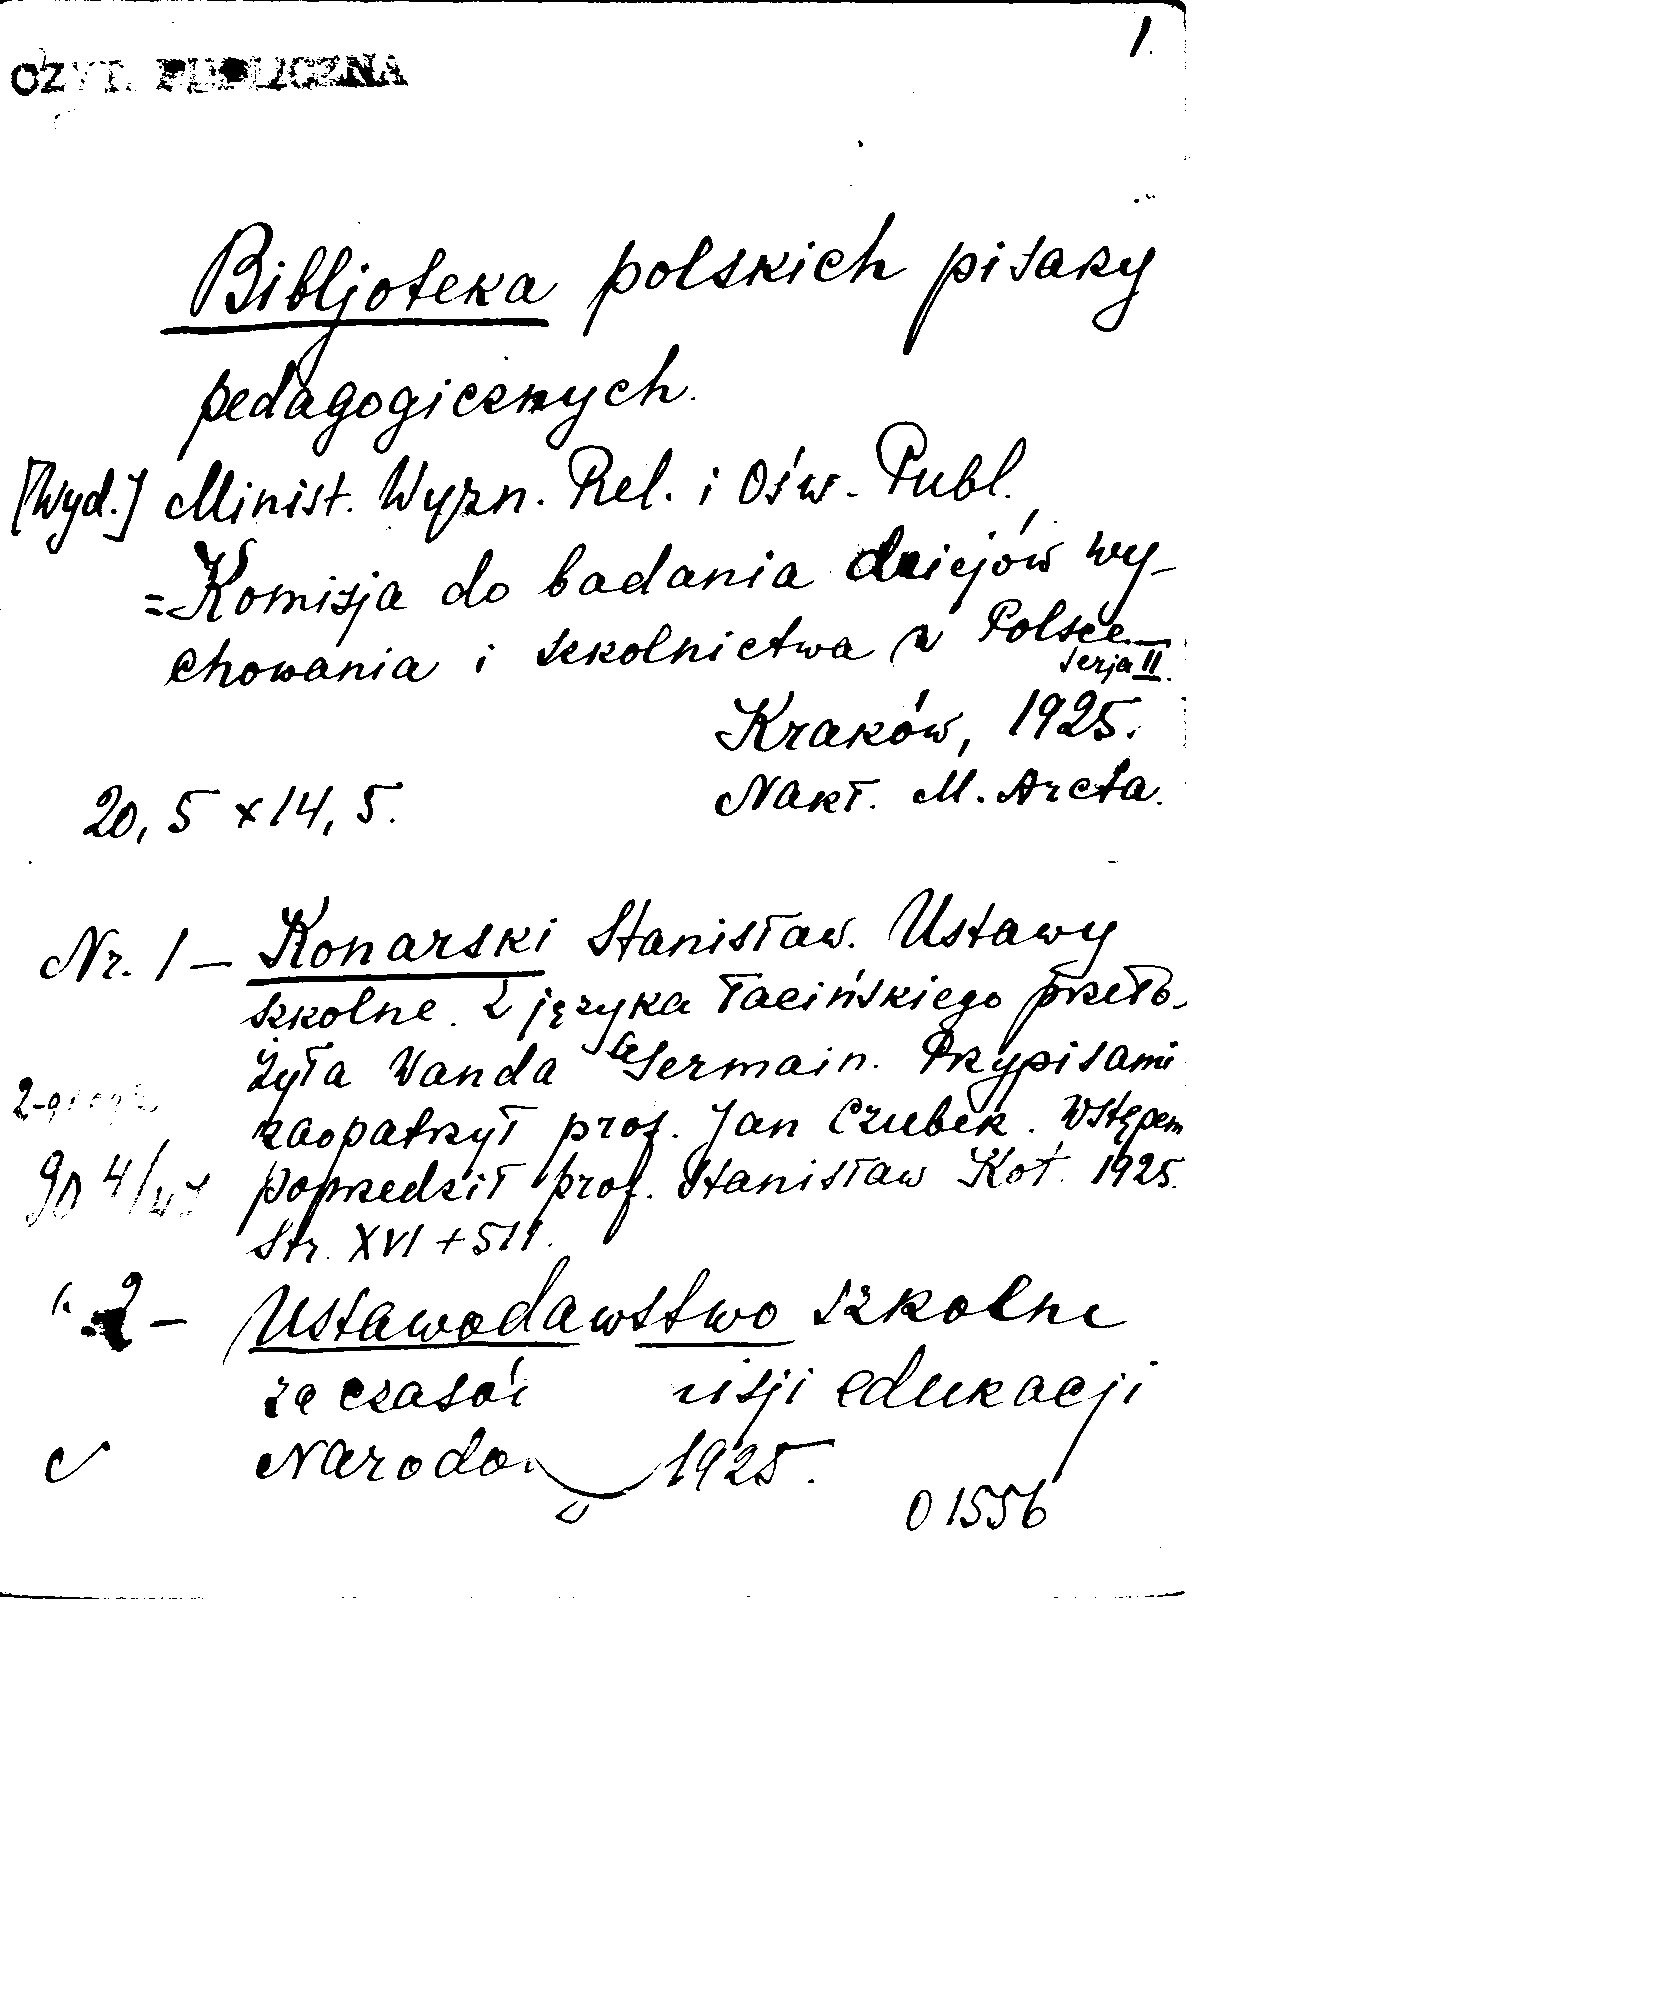 1.
CZYT. PUBLICZNA
Bibljoteka polskich pisarzy
pedagogicznych.
[Wyd.] Minist. Wyzn. Rel. i Ośw. Publ.
=Komisja do badania dziejów wy-
chowania i szkolnictwa w Polsce
Serja II.
Kraków, 1925.
20,5 x 14,5. Nakł. M. Arcta.
Nr. 1 — Konarski Stanisław. Ustawy
szkolne. Z języka łacińskiego przeło-
żyła Wanda Germain. Przypisami
zaopatrzył prof. Jan Czubek. Wstępem
904/47 poprzedził prof. Stanisław Kot. 1925.
Str. XVI + 511.
" 2 — Ustawodawstwo szkolne
za czasów misji edukacji
Narodow 1925.
01556